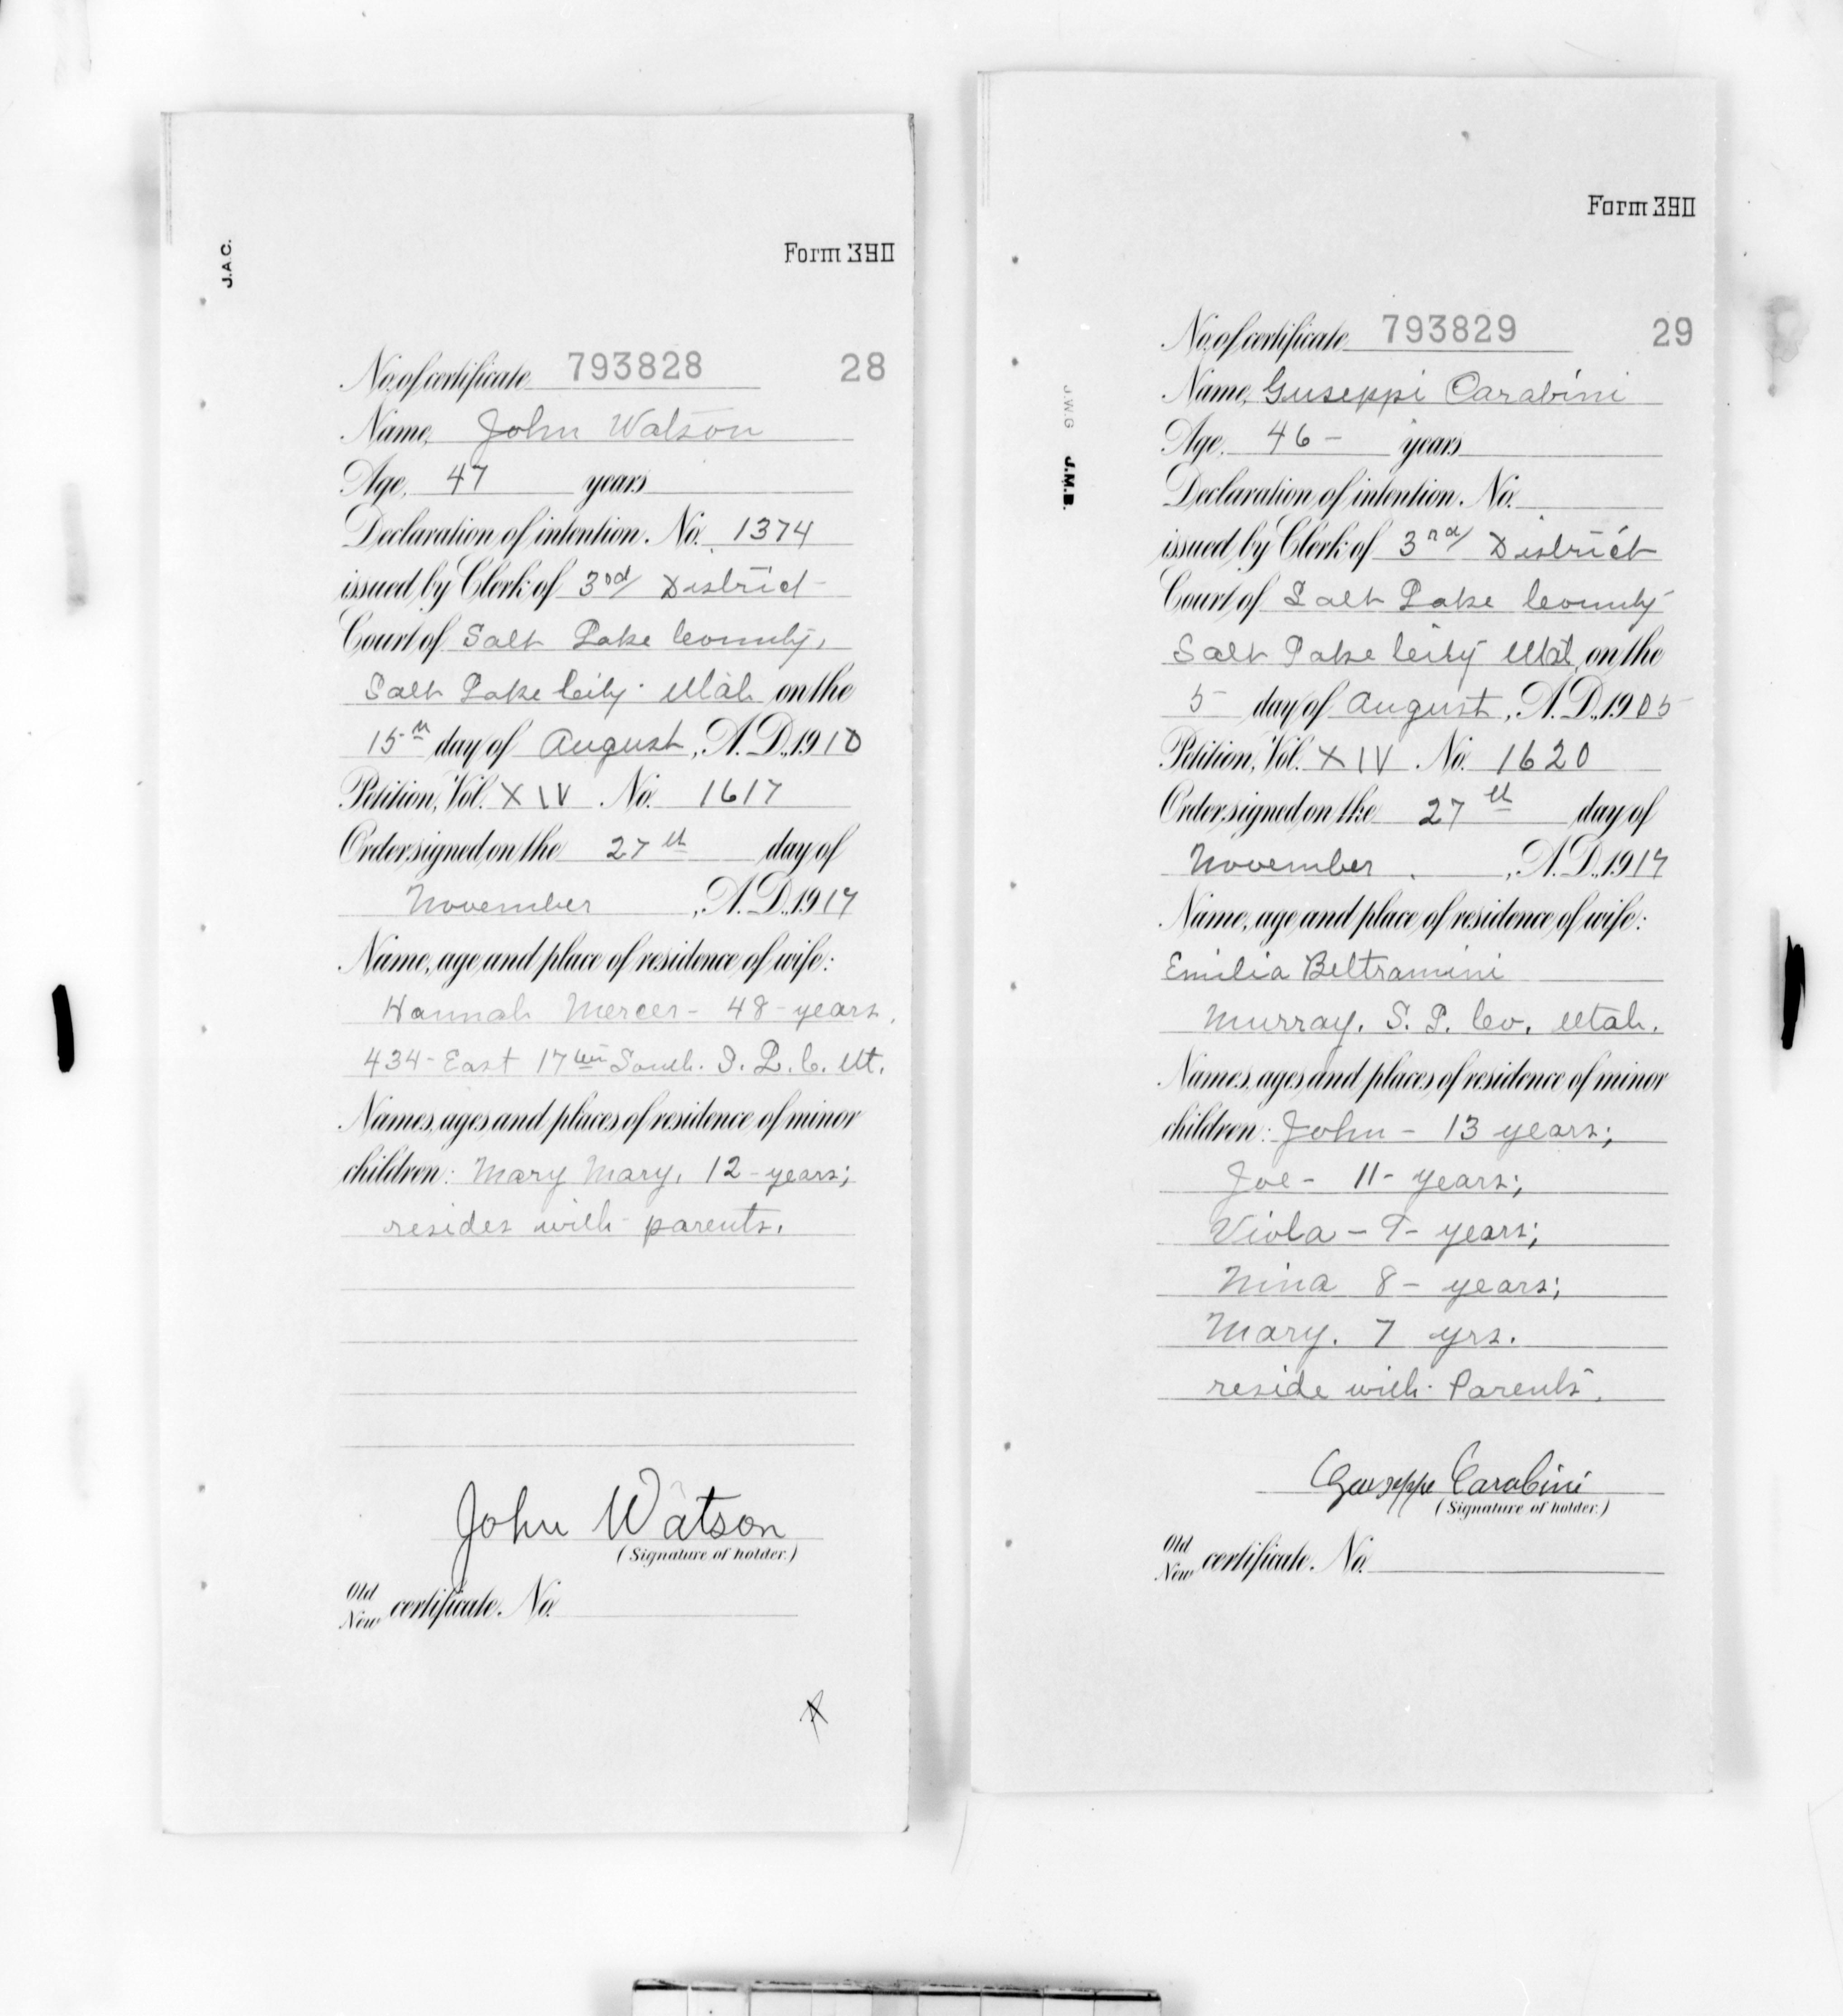 J.A.C.
Form 390
No. of certificate 793828 28
Name, John Watson
Age, 47 years
Declaration of intention. No. 1374
issued by Clerk of 3rd District
Court of Salt Lake County,
Salt Lake City Utah on the
15th day of August, A.D., 1910
Petition, Vol. XIV No. 1617
Order signed on the 27th day of
November, A.D., 1917
Name, age and place of residence of wife:
Hannah Mercer - 48 - years.
434 - East 17th South. S. L. C. Ut.
Names, ages and places of residence of minor
children: Mary Mary, 12 - years;
resides with parents.
John Watson
(Signature of holder.)
Old
New certificate. No.
Form 390
J.W.G J.M.B.
No. of certificate 793829 29
Name, Guseppi Carabini
Age, 46 - years
Declaration of intention. No.
issued by Clerk of 3rd District
Court of Salt Lake County
Salt Lake City Utah on the
5 day of August, A.D., 1905
Petition, Vol. XIV No. 1620
Order signed on the 27th day of
November, A.D., 1917
Name, age and place of residence of wife:
Emilia Beltramini
Murray. S. L. Co. Utah.
Names, ages and places of residence of minor
children: John - 13 years;
Joe - 11 - years;
Viola - 9 - years;
Nina 8 - years;
Mary. 7 yrs.
reside with Parents.
Guseppe Carabini
(Signature of holder.)
Old
New certificate. No.